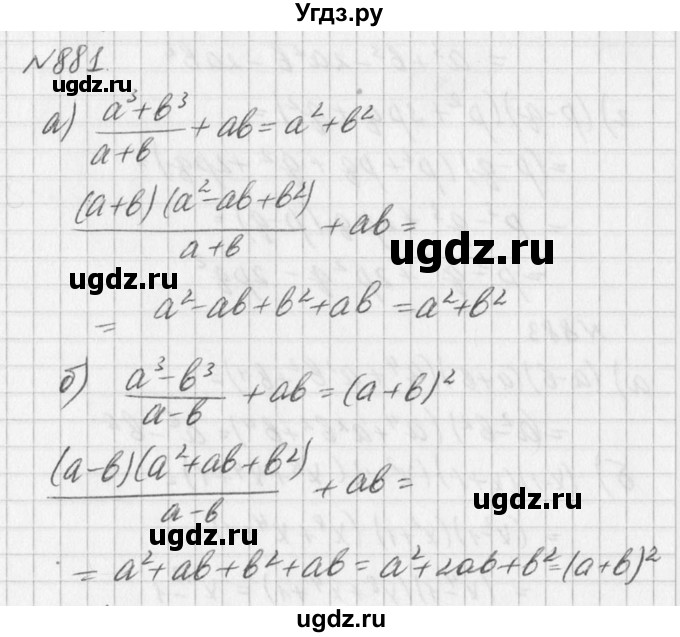 Угдз.ру
№881.
ugdz.ru ugdz.ru
а) (a³+b³)/(a+b) + ab = a²+b²
((a+b)(a²-ab+b²))/(a+b) + ab =
ugdz.ru
ugdz.ru
= a²-ab+b²+ab = a²+b²
ugdz.ru
б) (a³-b³)/(a-b) + ab = (a+b)²
((a-b)(a²+ab+b²))/(a-b) + ab =
ugdz.ru
ugdz.ru
= a²+ab+b²+ab = a²+2ab+b² = (a+b)²
ugdz.ru